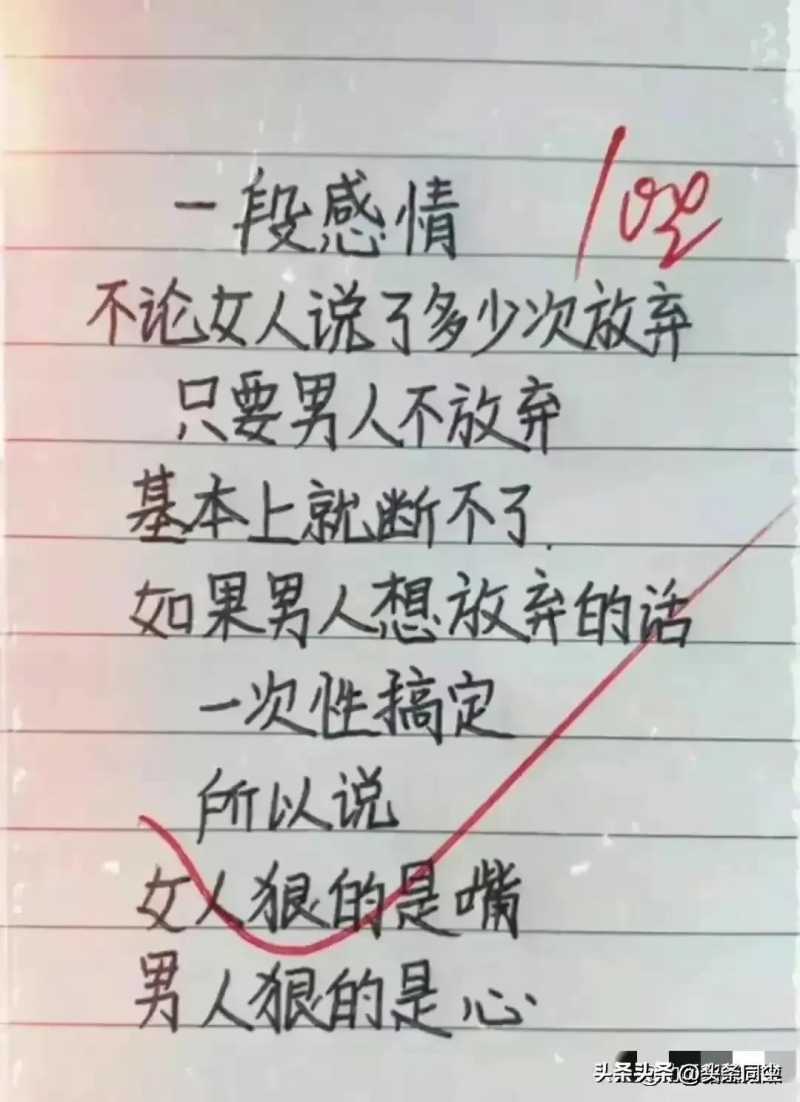 一段感情
不论女人说了多少次放弃
只要男人不放弃
基本上就断不了.
如果男人想放弃的话
一次性搞定
所以说
女人狠的是嘴
男人狠的是心
头条